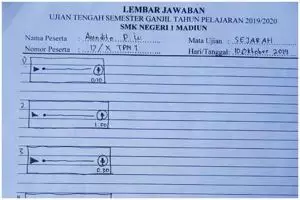 LEMBAR JAWABAN
UJIAN TENGAH SEMESTER GANJIL TAHUN PELAJARAN 2019/2020
SMK NEGERI 1 MADIUN
Nama Peserta : Anindita D. W Mata Ujian : SEJARAH
Nomor Peserta : 12/X TPM 1 Hari/Tanggal : 10 Oktober 2019
0:10
2.
1.00
3
0.30